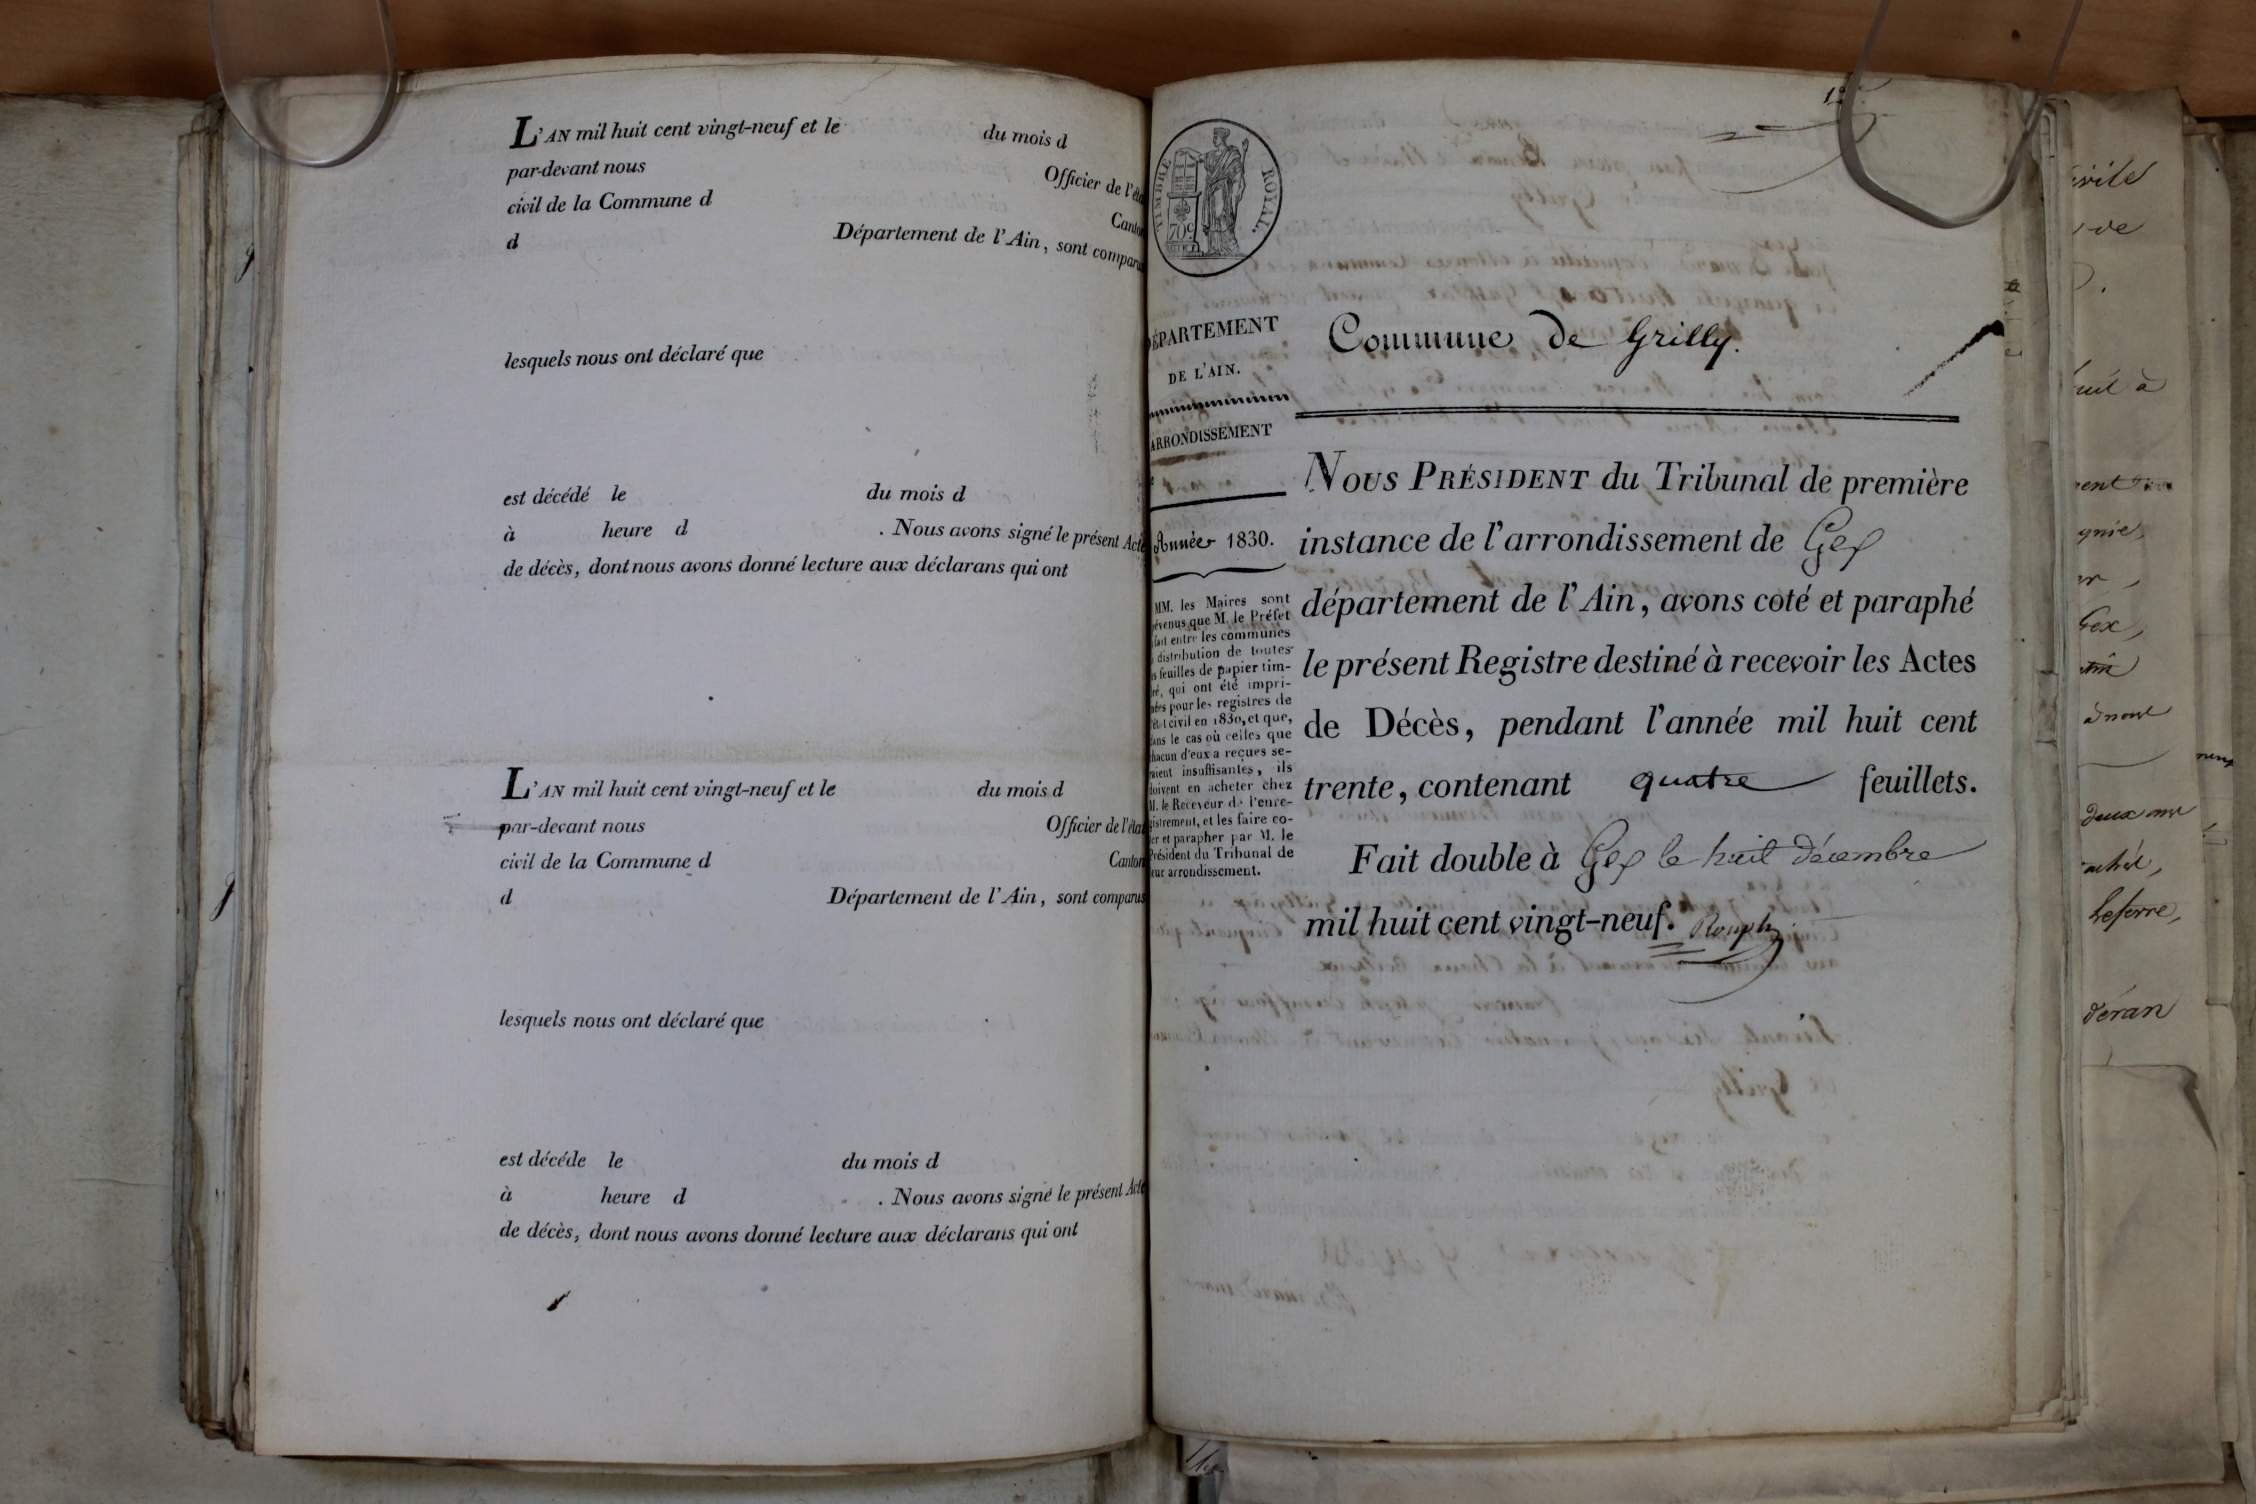 L'AN mil huit cent vingt-neuf et le du mois d
par-devant nous Officier de l'éta
civil de la Commune d Canton
d Département de l'Ain, sont comparus
lesquels nous ont déclaré que
est décédé le du mois d
à heure d . Nous avons signé le présent Acte
de décès, dont nous avons donné lecture aux déclarans qui ont
L'AN mil huit cent vingt-neuf et le du mois d
par-devant nous Officier de l'état
civil de la Commune d Canton
d Département de l'Ain, sont comparus
lesquels nous ont déclaré que
est décédé le du mois d
à heure d . Nous avons signé le présent Acte
de décès, dont nous avons donné lecture aux déclarans qui ont
TIMBRE ROYAL.
70c
DÉPARTEMENT
DE L'AIN.
ARRONDISSEMENT
Année 1830.
MM. les Maires sont
évenus que M. le Préfet
fait entre les communes
distribution de toutes
s feuilles de papier tim-
ré, qui ont été impri-
mées pour les registres de
l'état civil en 1830, et que,
dans le cas où celles que
chacun d'eux a reçues se-
raient insuffisantes, ils
doivent en acheter chez
M. le Receveur de l'enre-
gistrement, et les faire co-
ter et parapher par M. le
Président du Tribunal de
leur arrondissement.
Commune de Grilly.
NOUS PRÉSIDENT du Tribunal de première
instance de l'arrondissement de Gex
département de l'Ain, avons coté et paraphé
le présent Registre destiné à recevoir les Actes
de Décès, pendant l'année mil huit cent
trente, contenant quatre feuillets.
Fait double à Gex le huit décembre
mil huit cent vingt-neuf.